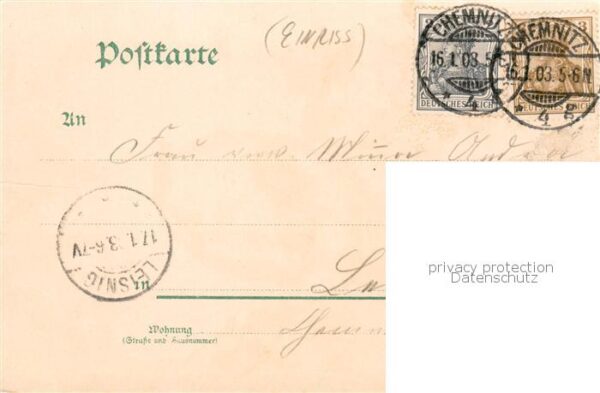 Postkarte
(EINRISS)
CHEMNITZ
16.1.03.5-
* 4
2
DEUTSCHES REICH
CHEMNITZ
16.1.03.5-6N.
* 4 g
3
DEUTSCHES REICH
An
Frau
17.1.03.6-7V
LEISNIG
in
Wohnung
(Straße und Hausnummer)
privacy protection
Datenschutz